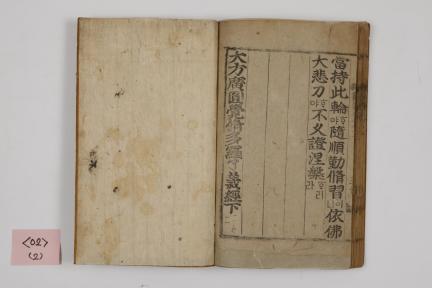 當持此輪야ᄒᆞ隨順勤脩習이니依佛
大悲力야ᄒᆞ不久證涅槃ᄒᆞ리라
大方廣圓覺脩多羅了義經下
<02>
(2)